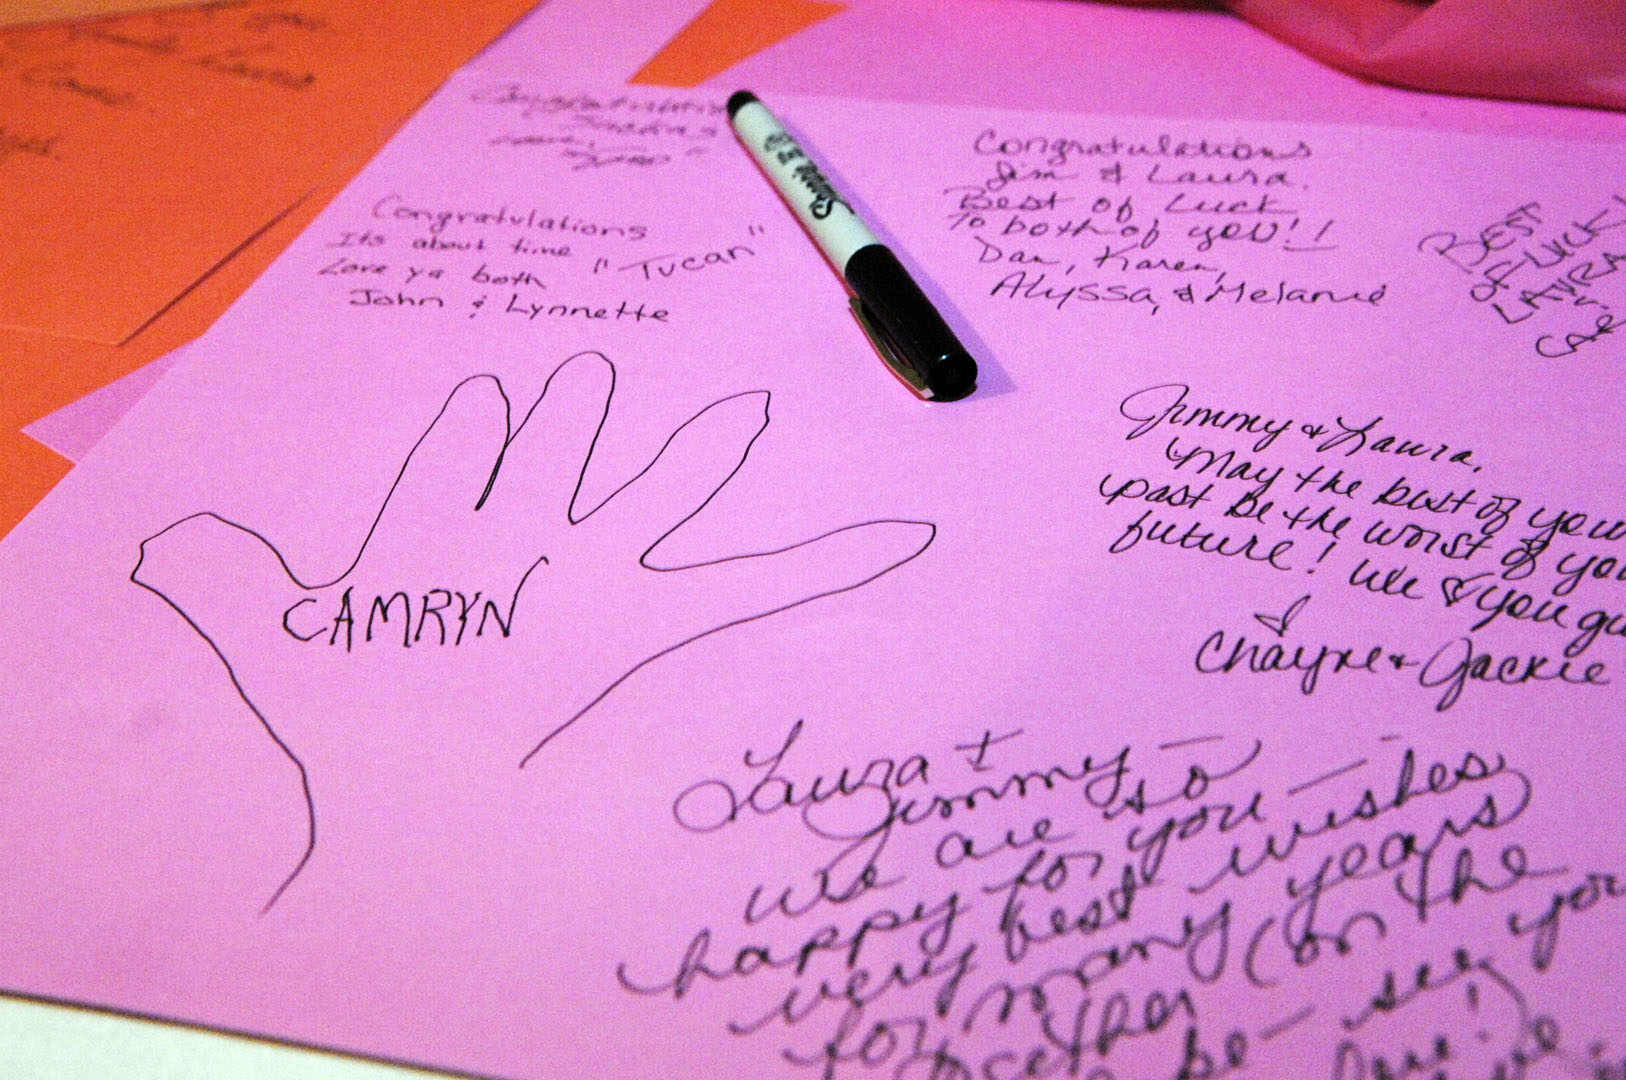 Congratulations
Congratulations
Its about time
Love ya both "Tucan"
John & Lynnette
Sharpie
Congratulations
Jim & Laura.
Best of Luck
To both of you!!
Dan, Karen,
Alyssa, & Melanie
BEST
OF LUCK
LAURA
CAMRYN
Jimmy & Laura,
May the best of your
past be the worst of
future! We you
Chayne & Jackie
Laura +
Jimmy -
we are so
happy for you -
very best wishes
for many years
together (on the
be - see you